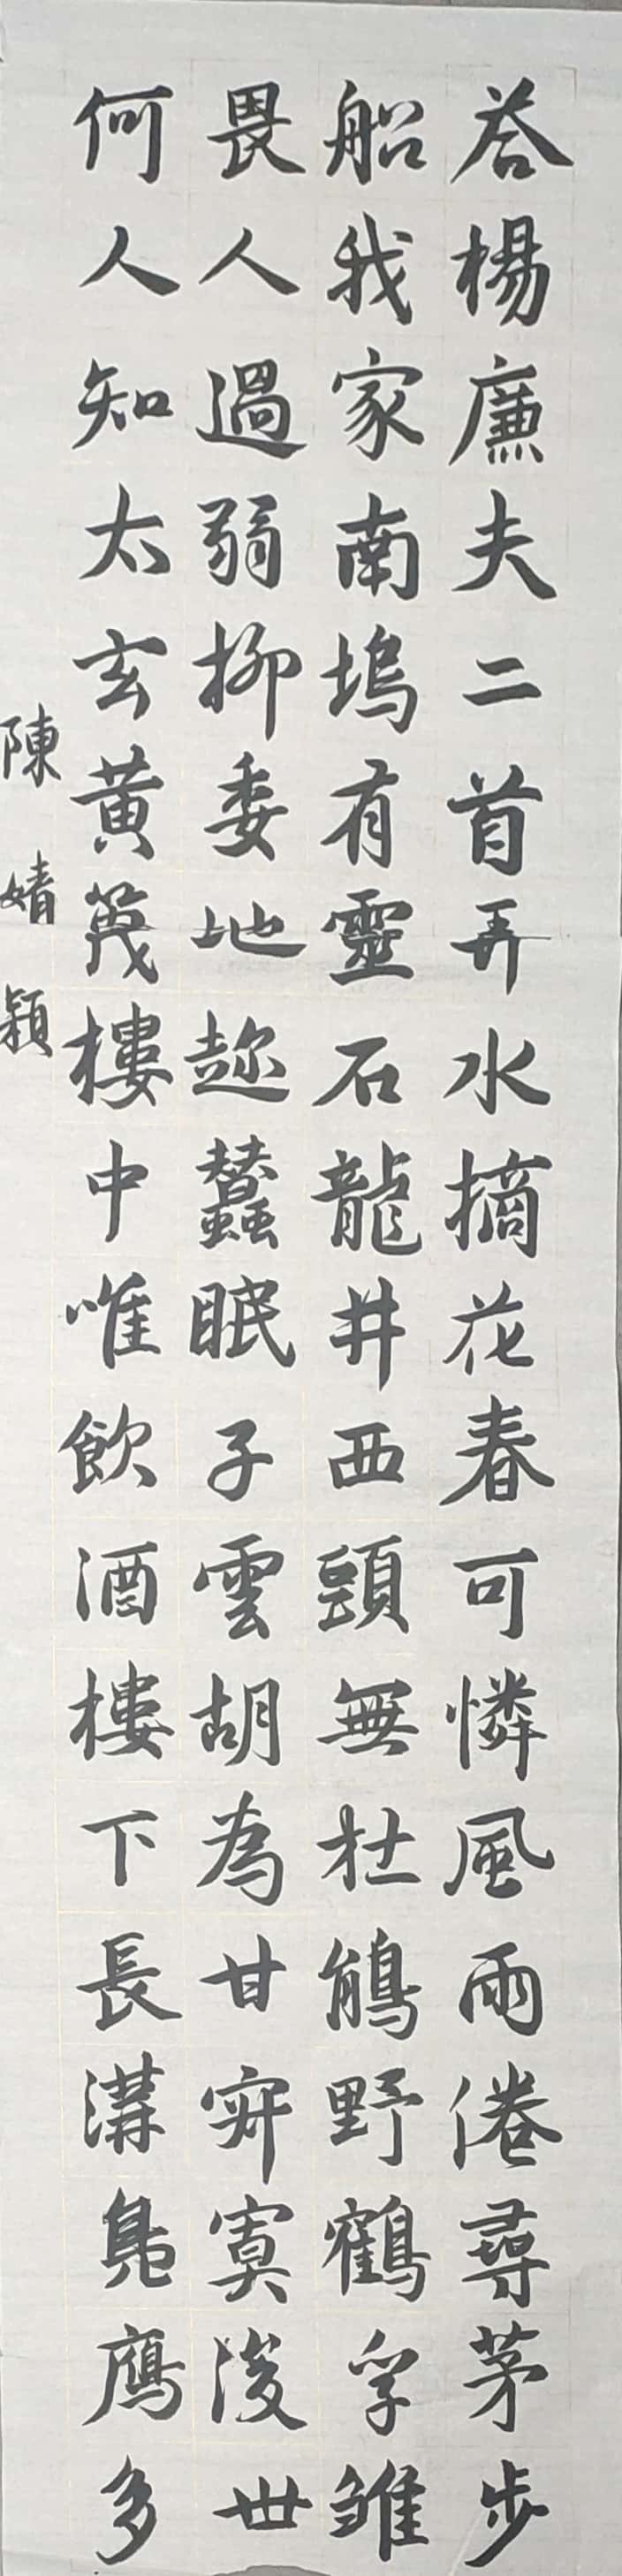 答楊廉夫二首弄水摘花春可憐風雨倦尋茅步
船我家南塢有靈石龍井西頭無杜鵑野鶴孚雏
畏人過弱柳委地趂蠶眠子雲胡為甘寂寞後世
何人知太玄黃篾樓中唯飲酒樓下長溝鳧鴈多
陳婧穎